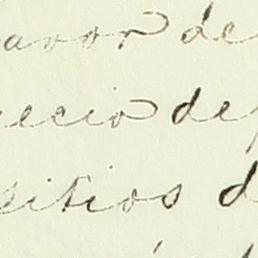 avor de
ecio de
sitios d